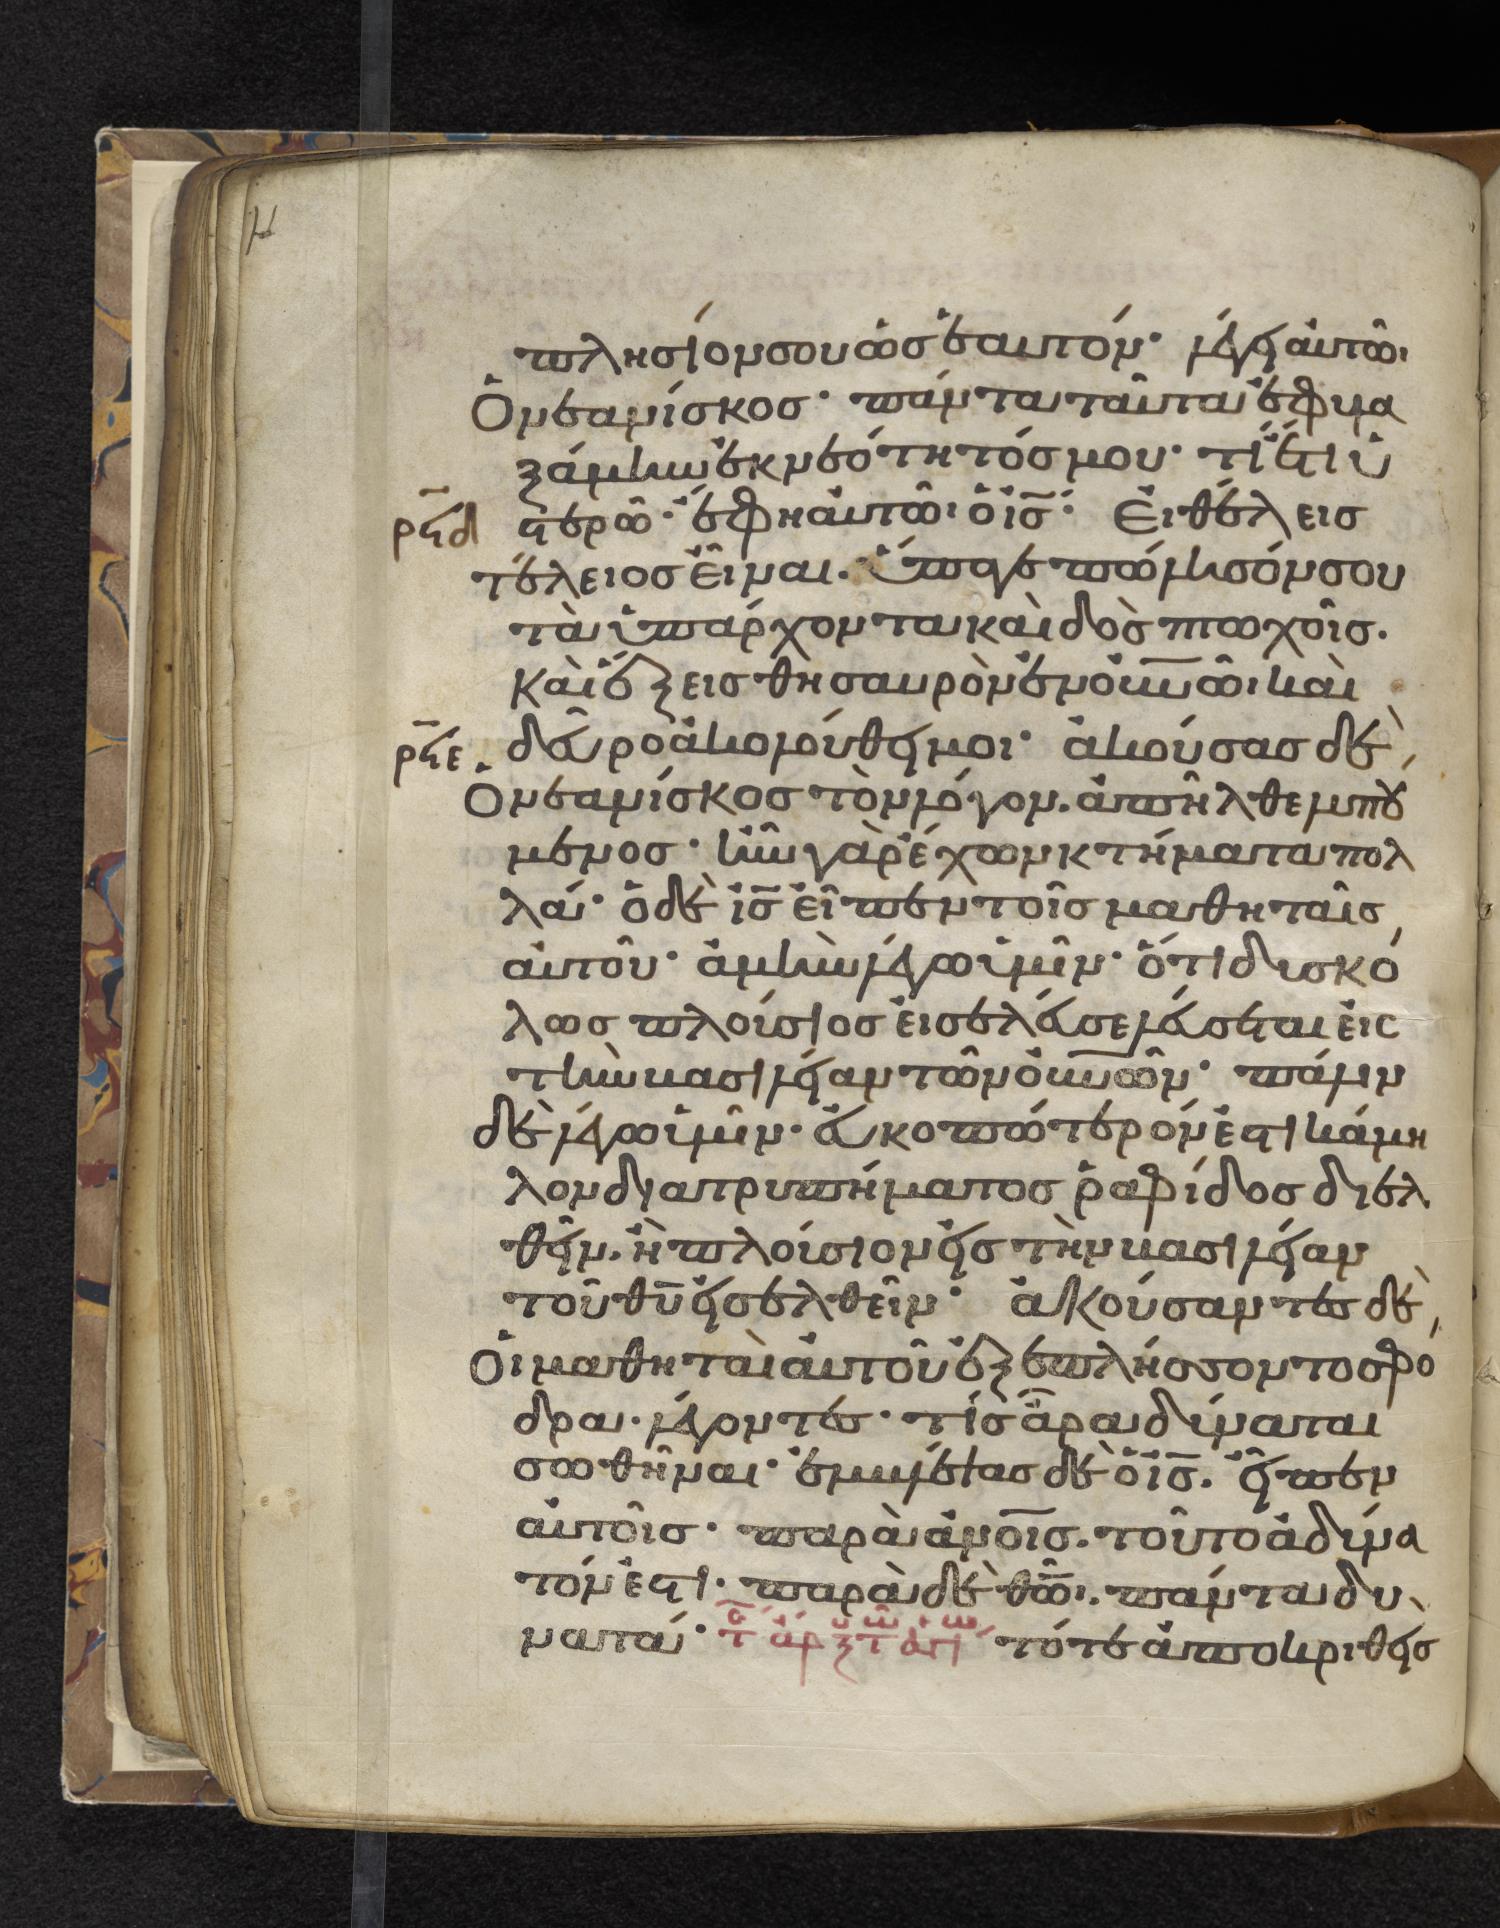 πλησίον σου ὡς ἑαυτόν· λέγει αὐτῶ·
Ὁ νεανίσκος· πάντα ταῦτα ἐφυλα
ξάμην ἐκ νεότητός μου· τί ἔτι ὑ
ρϟδ στερῶ· ἔφη αὐτῶ ὁ ις· Εἰ θέλεις
τέλειος εἶναι. ὕπαγε πώλησόν σου
τὰ ὑπάρχοντα καὶ δὸς πτωχοῖς.
Καὶ ἕξεις θησαυρὸν ἐν οὐνῶ· καὶ
ρϟε δεῦρο ἀκολούθει μοι· ἀκούσας δὲ,
Ὁ νεανίσκος τὸν λόγον. ἀπῆλθε λυπού
μενος· ἦν γὰρ ἔχων κτήματα πολ
λά· ὁ δὲ ις εἶπεν τοῖς μαθηταῖς,
αὐτοῦ· ἀμὴν λέγω ὑμῖν· ὅτι δυσκό
λως πλούσιος εἰσελεύσεται εἰς
τὴν βασιλείαν τῶν οὐνῶν· πάλιν
δὲ λέγω ὑμῖν· εὐκοπώτερόν ἐστι κάμη
λον διὰ τρυπήματος ῥαφίδος διελ
θεῖν. ἢ πλούσιον εἰς τὴν βασιλείαν
τοῦ θυ εἰσελθεῖν· ἀκούσαντες δὲ,
Οἱ μαθηταὶ αὐτοῦ ἐξεπλήσσοντο σφό
δρα. λέγοντες· τίς ἄρα δύναται
σωθῆναι· ἐμβλέψας δὲ ὁ ις. εἶπεν
αὐτοῖς· παρὰ ἀνοις. τοῦτο ἀδύνα
τόν ἐστι. παρὰ δὲ θῶ. πάντα δυ
νατά· τότε ἀποκριθεὶς